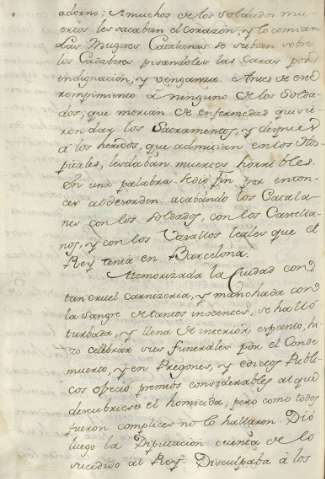 adorno; A muchos de los Soldados mu-
ertos les sacaban el corazón, y lo comian
Las Mugeres Catalanas se subian sobre
los Cadaberes pisandoles las Caras por
indignación, y venganza. Antes de este
rompimiento à ninguno de los Solda-
dos, que morian de enfermedad quisie-
ron dar los Sacramentos, y despues
à los heridos, que admitian en los Hos-
pitales, les daban muertes horribles.
En una palabra dio fin por enton-
ces al desorden acabando los Catala-
nes con los Soldados, con los Castella-
nos, y con los Vasallos leales que el
Rey tenia en Barcelona.
Atemorizada la Ciudad con
tan cruel Carniceria, y manchada con
la Sangre de tantos inocentes, se hallò
turbada, y llena de interior espanto, hi-
zo celebrar sus funerales por el Conde
muerto, y en Pregones, y edictos Publi-
cos ofreciò premios considerables al que
descubriese el homicida, pero como todos
fueron complices no lo hallaron. Diò
luego la Diputacion cuenta de lo
sucedido al Rey. Disculpaba à los